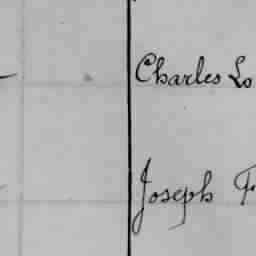 Charles Lo
Joseph F